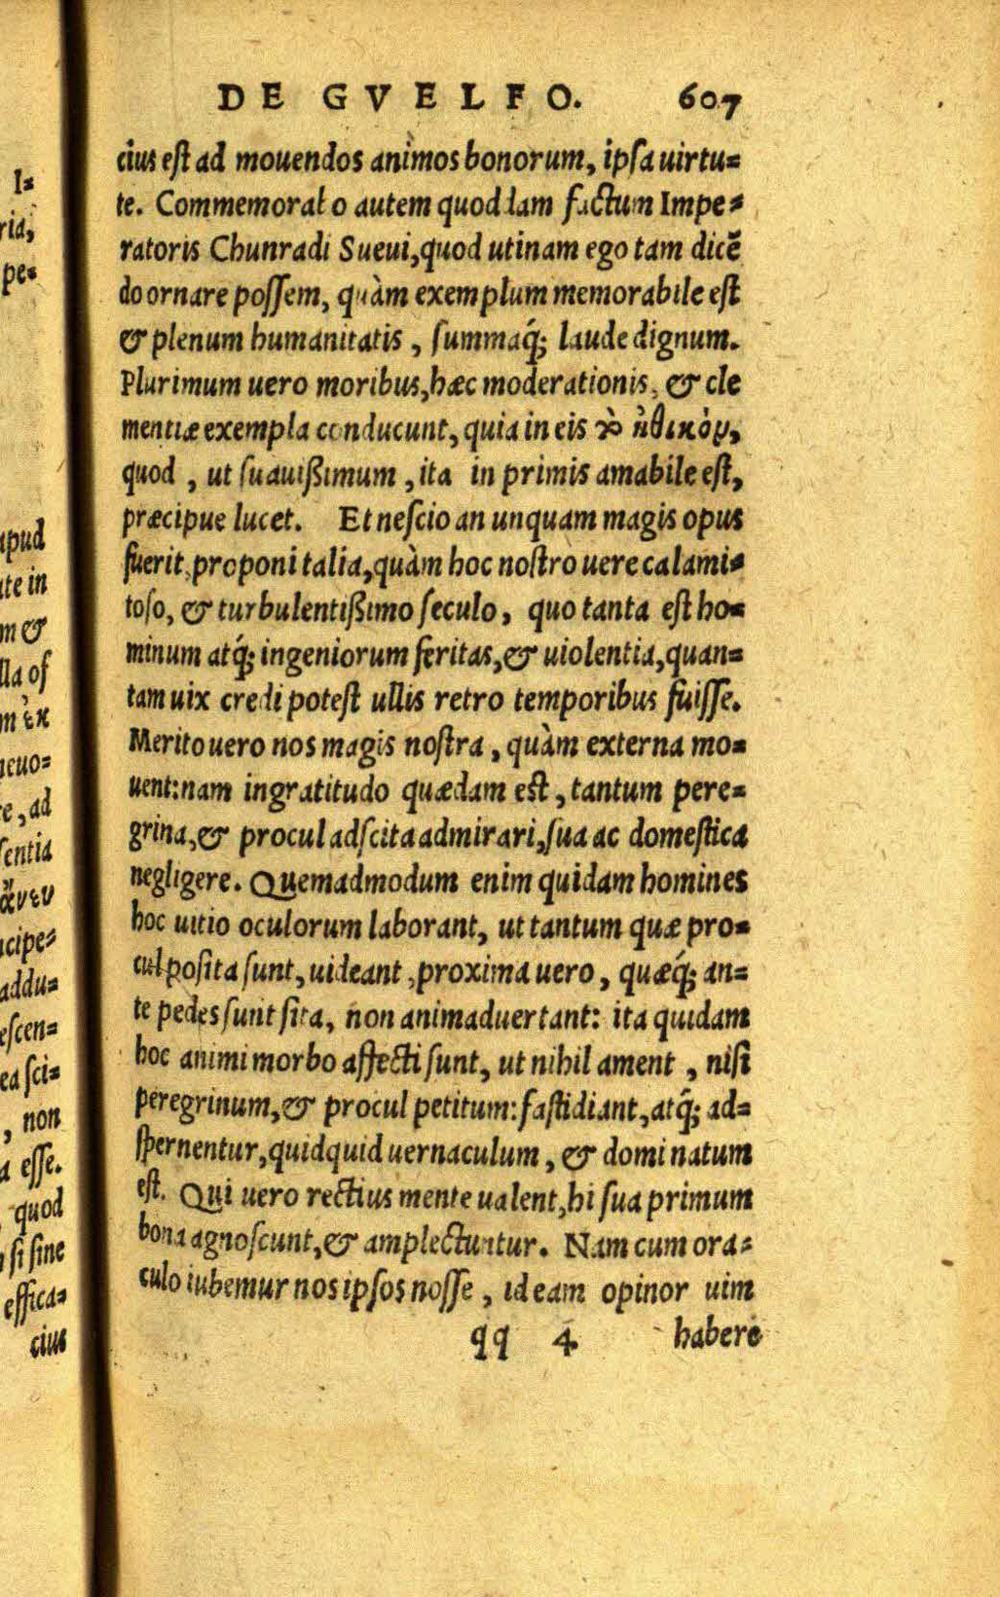 DE GVELFO. 607
cius est ad mouendos animos bonorum, ipsa uirtu=
te. Commemorabo autem quoddam factum Impe=
ratoris Chunradi Sueui, quod utinam ego tam dicē
do ornare possem, quàm exemplum memorabile est
& plenum humanitatis, summaq́; laude dignum.
Plurimum uero moribus, hæc moderationis, & cle
mentiæ exempla conducunt, quia in eis τὸ ἠθικὸν,
quod, ut suauißimum, ita in primis amabile est,
præcipue lucet. Et nescio an unquam magis opus
fuerit, proponi talia, quàm hoc nostro uere calami=
toso, & turbulentißimo seculo, quo tanta est ho=
minum atq́; ingeniorum feritas, & uiolentia, quan=
tam uix credi potest ullis retro temporibus fuisse.
Merito uero nos magis nostra, quàm externa mo=
uent: nam ingratitudo quædam est, tantum pere=
grina, & procul adscita admirari, sua ac domestica
negligere. Quemadmodum enim quidam homines
hoc uitio oculorum laborant, ut tantum quæ pro=
cul posita sunt, uideant, proxima uero, quæq́; an=
te pedes sunt sita, non animaduertant: ita quidam
hoc animi morbo affecti sunt, ut nihil ament, nisi
peregrinum, & procul petitum: fastidiant, atq́; ad=
spernentur, quidquid uernaculum, & domi natum
est. Qui uero rectius mente ualent, hi sua primum
bona agnoscunt, & amplectuntur. Nam cum ora=
culo iubemur nos ipsos nosse, ideam opinor uim
qq 4 habere
I=
ria,
pe=
apud
te in
m &
lla of
m ἐκ
e, ad
sentia
ἄνευ
cipe=
addu=
escen=
ea sci=
, non
a esse.
quod
si sine
effica=
cius